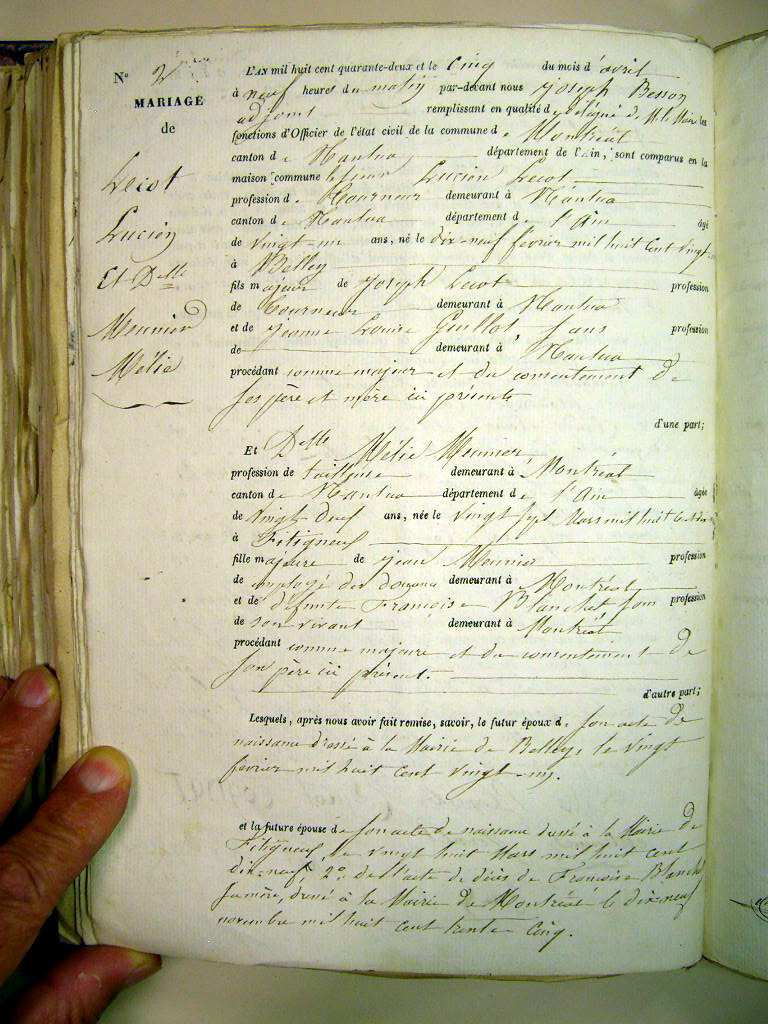 N° 2
MARIAGE
de
Lecot
Lucien
Et Delle
Meunier
Mélie
L'AN mil huit cent quarante-deux et le cinq du mois d'avril
à neuf heures du matin par-devant nous Joseph Besson
adjoint remplissant en qualité de délégué de M. le Maire les
fonctions d'Officier de l'état civil de la commune de Montréal
canton de Nantua département de l'Ain, sont comparus en la
maison commune le sieur Lucien Lecot
profession de Tourneur demeurant à Nantua
canton de Nantua département de l'Ain âgé
de vingt-un ans, né le dix-neuf février mil huit cent vingt-
à Belley
fils majeur de Joseph Lecot profession
de Tourneur demeurant à Nantua
et de Jeanne Louise Guillot, sans profession
de demeurant à Nantua
procédant comme majeur et du consentement de
ses père et mère ici présents
d'une part;
Et Delle Mélie Meunier
profession de tailleuse demeurant à Montréal
canton de Nantua département de l'Ain âgée
de vingt deux ans, née le vingt sept Mars mil huit cent dix
à Fitigneux
fille majeure de Jean Meunier profession
de employé des douanes demeurant à Montréal
et de défunte Françoise Blanchet sans profession
de son vivant demeurant à Montréal
procédant comme majeure et du consentement de
son père ici présent.
d'autre part;
Lesquels, après nous avoir fait remise, savoir, le futur époux de son acte de
naissance dressé à la Mairie de Belley, le vingt
février mil huit cent vingt-un.
et la future épouse de son acte de naissance dressé à la Mairie de
Fitigneux, le vingt huit Mars mil huit cent
dix-neuf, 2° de l'acte de décès de Françoise Blanchet
sa mère, dressé à la Mairie de Montréal le dix-neuf
novembre mil huit cent trente cinq.